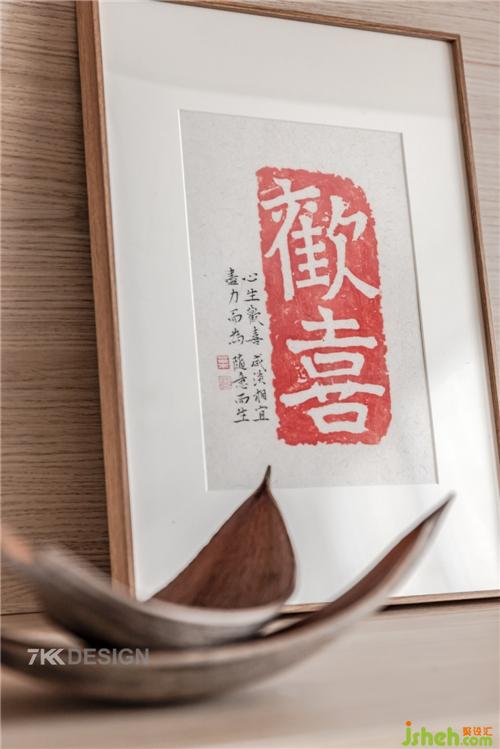 歡
喜
心生歡喜 咸淡相宜
盡力而為 隨意而生
7KK DESIGN
聚设汇
jsheh.com